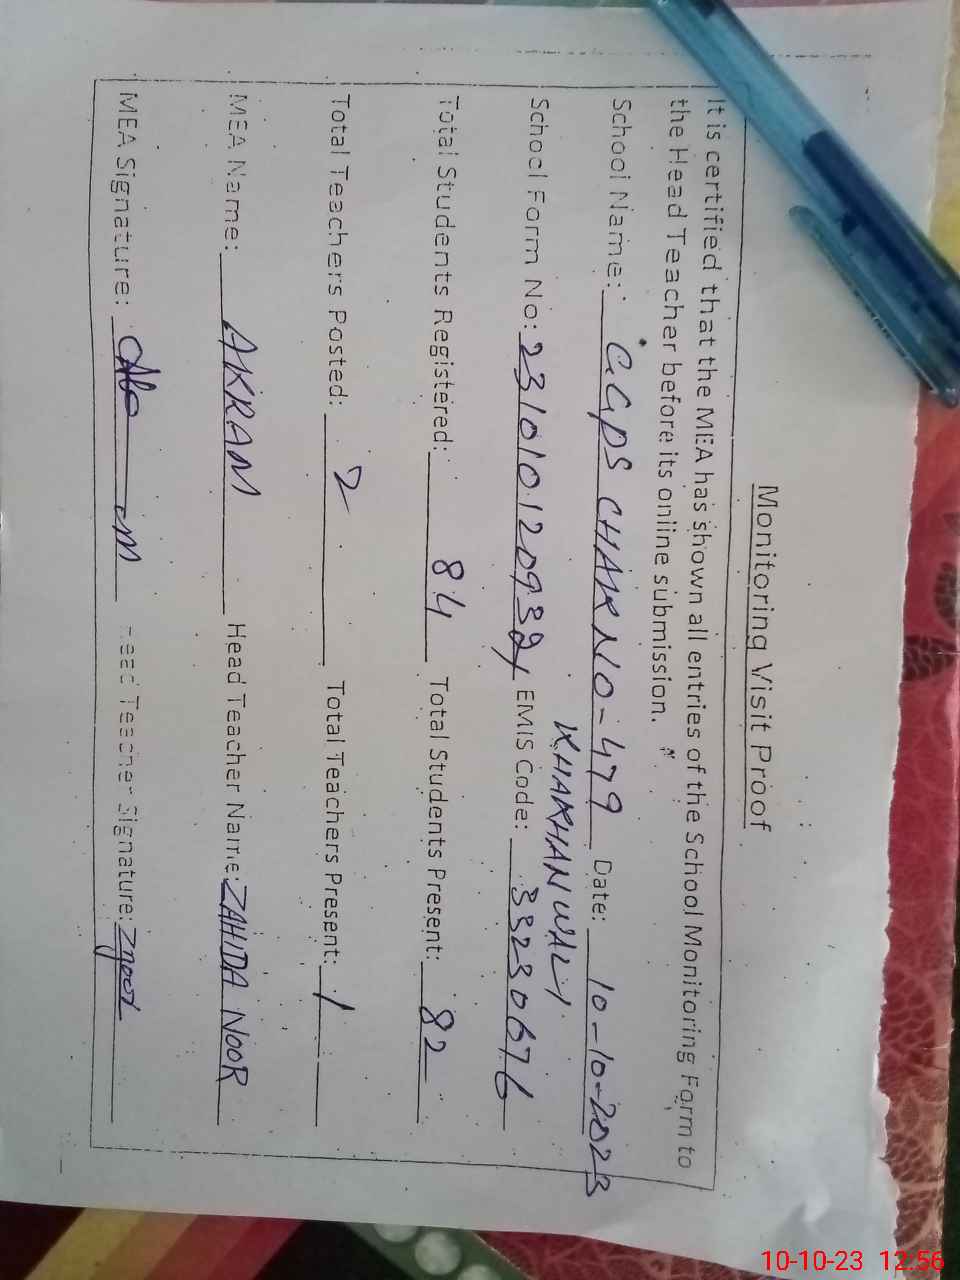 Monitoring Visit Proof
It is certified that the MEA has shown all entries of the School Monitoring Form to
the Head Teacher before its online submission.
School Name: GGPS CHAK NO-479 Date: 10-10-2023
KHAKHANWALI
School Form No: EMIS Code: 33230676
Total Students Registered: 84 Total Students Present: 82
Total Teachers Posted: 2 Total Teachers Present: 1
MEA Name: AKRAM Head Teacher Name: ZAHIDA NOOR
MEA Signature: Head Teacher Signature: Znoor
10-10-23 12:56